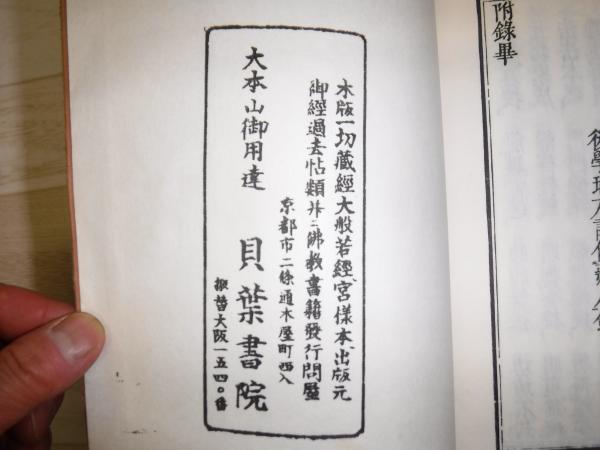 附錄畢
木版一切藏經大般若經宮樣本出版元
御經過去帖類并ニ佛教書籍發行問屋
京都市二條通木屋町西入
貝葉書院
振替大阪一五四〇番
大本山御用達